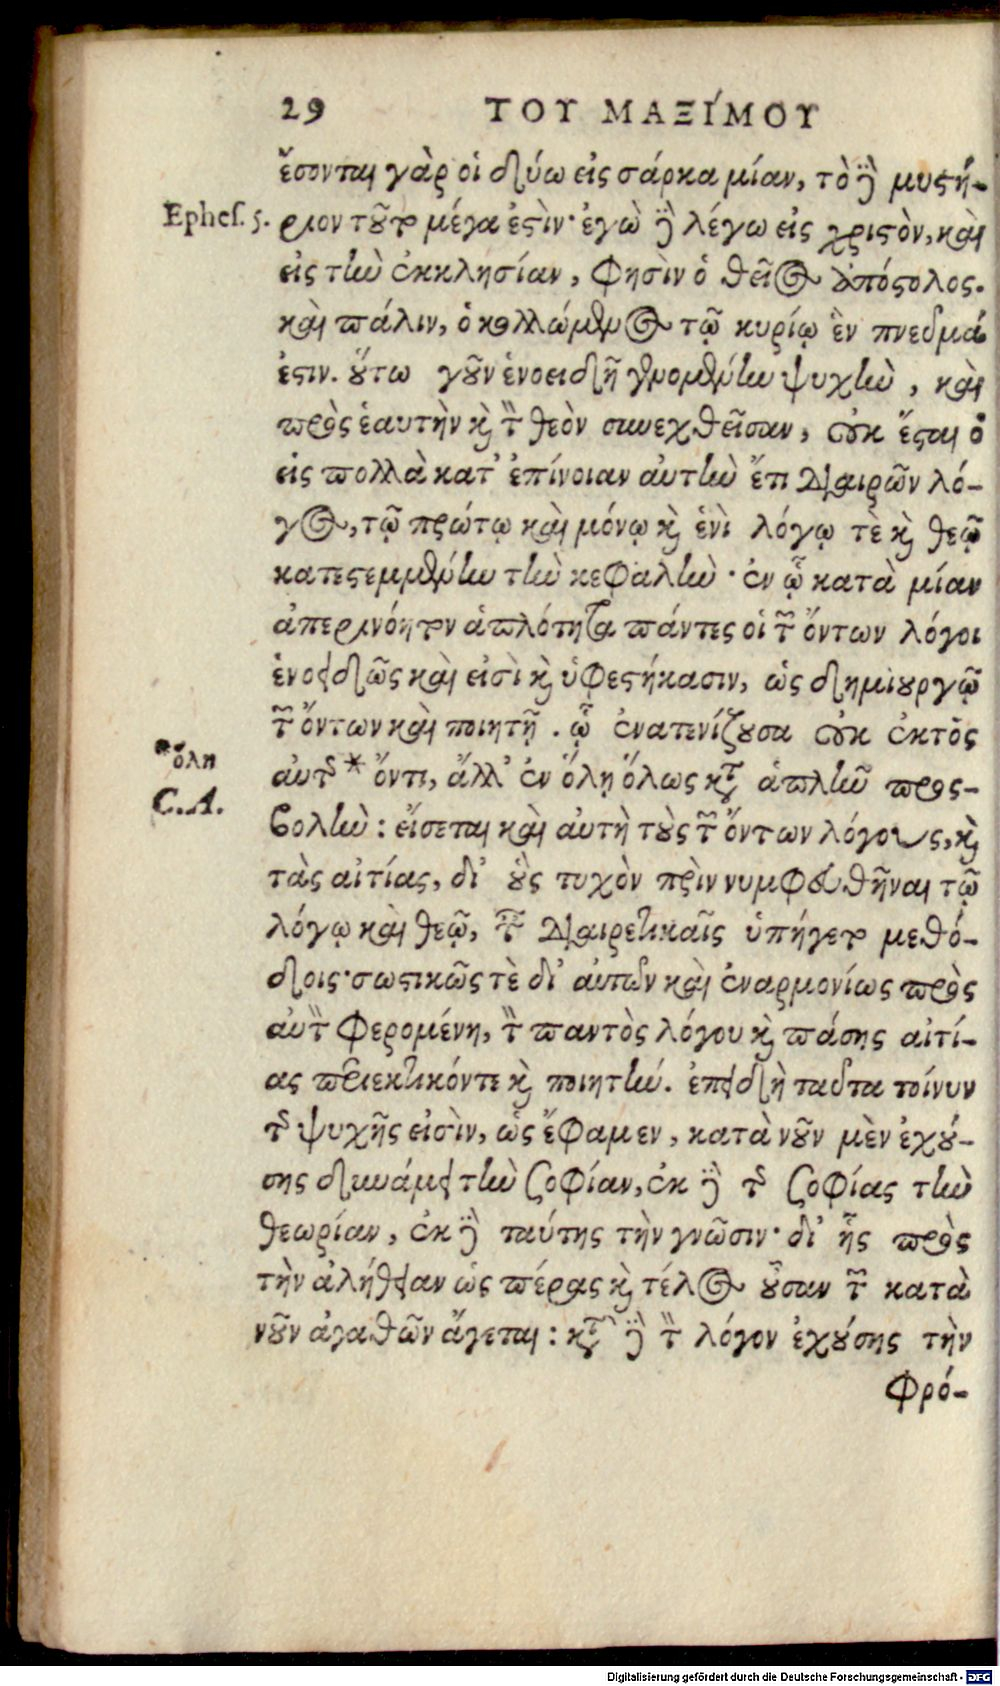 29 ΤΟΥ ΜΑΞΊΜΟΥ
ἔσονται γὰρ οἱ δύω εἰς σάρκα μίαν, τὸ ἢ μυστή-
Ephes. 5. ριον τοῦτο μέγα ἐστὶν· ἐγὼ δὲ λέγω εἰς χριστὸν, καὶ
εἰς τὴν ἐκκλησίαν, φησὶν ὁ θεῖος ἀπόστολος.
καὶ πάλιν, ὁ κολλώμενος τῷ κυρίῳ ἓν πνεῦμά
ἐστιν. οὕτω γοῦν ἑνοειδῆ γενομένην ψυχὴν, καὶ
πρὸς ἑαυτὴν καὶ τὸν θεὸν συνεχθεῖσαν, οὐκ ἔσται ὁ
εἰς πολλὰ κατ' ἐπίνοιαν αὐτὴν ἔτι διαιρῶν λό-
γος, τῷ πρώτῳ καὶ μόνῳ καὶ ἑνὶ λόγῳ τὲ καὶ θεῷ
κατεστεμμένην τὴν κεφαλὴν· ἐν ᾧ κατὰ μίαν
ἀπερινόητον ἁπλότητα πάντες οἱ τῶν ὄντων λόγοι
ἑνοειδῶς καὶ εἰσὶ καὶ ὑφεστήκασιν, ὡς δημιουργῷ
τῶν ὄντων καὶ ποιητῇ. ᾧ ἐνατενίζουσα οὐκ ἐκτὸς
*ὅλη αὐτῆς * ὄντι, ἄλλ' ἐν ὅλῃ ὅλως κατὰ ἁπλῆν προς-
C.A. βολὴν: εἴσεται καὶ αὐτὴ τοὺς τῶν ὄντων λόγους, καὶ
τὰς αἰτίας, δι' οὓς τυχὸν πρὶν νυμφευθῆναι τῷ
λόγῳ καὶ θεῷ, ταῖς διαιρετικαῖς ὑπήγετο μεθό-
δοις· σωστικῶς τὲ δι' αὐτῶν καὶ ἐναρμονίως πρὸς
αὐτὸν φερομένη, τὸν παντὸς λόγου καὶ πάσης αἰτί-
ας περιεκτικόντε καὶ ποιητήν. ἐπειδὴ ταῦτα τοίνυν
τῆς ψυχῆς εἰσὶν, ὡς ἔφαμεν, κατὰ νοῦν μὲν ἐχού-
σης δυνάμει τὴν σοφίαν, ἐκ δὲ τῆς σοφίας τὴν
θεωρίαν, ἐκ δὲ ταύτης τὴν γνῶσιν· δι' ἧς πρὸς
τὴν ἀλήθειαν ὡς πέρας καὶ τέλος οὖσαν τῶν κατὰ
νοῦν ἀγαθῶν ἄγεται: κατὰ δὲ τὸν λόγον ἐχούσης τὴν
φρό-
Digitalisierung gefördert durch die Deutsche Forschungsgemeinschaft - DFG